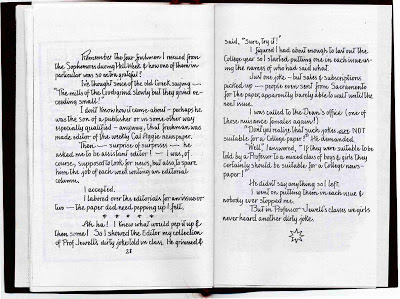 Remember the four freshmen I rescued from
the Sophomores during Hell Week & how one of them in
particular was so extra grateful?
I've thought since of the old Greek saying —
"The mills of the Gods grind slowly but they grind ex-
ceeding small."
I don't know how it came about – perhaps he
was the son of a publisher or in some other way
especially qualified – anyway, that freshman was
made editor of the weekly Cal Aggie newspaper.
Then — surprise of surprises — he
asked me to be assistant editor! — I was, of
course, supposed to look for news, but also, to spare
him the job of each week writing an editorial
column.
I accepted.
I labored over the editorials for an issue or
two — the paper did need pepping up I felt.
* * * * * *
Ah ha! I knew what would pep it up &
then some! So I showed the Editor my collection
of Prof. Jewell's dirty jokes told in class. He grinned &
28
said, "Sure, try it!"
I figured I had about enough to last out the
College year so I started putting one in each issue us-
ing the names of who had said what.
Just one joke – but sales & subscriptions
picked up — people even sent from Sacramento
for the paper, apparently barely able to wait until the
next issue.
I was called to the Dean's office (one of
those nuisance females again!)
"Don't you realize that such jokes are NOT
suitable for a College paper?" He demanded.
"Well," I answered, "If they were suitable to be
told by a Professor to a mixed class of boys & girls they
certainly should be suitable for a College news-
paper!"
He didn't say anything so I left.
I went on putting them in each issue &
nobody ever stopped me.
But in Professor Jewell's classes we girls
never heard another dirty joke.